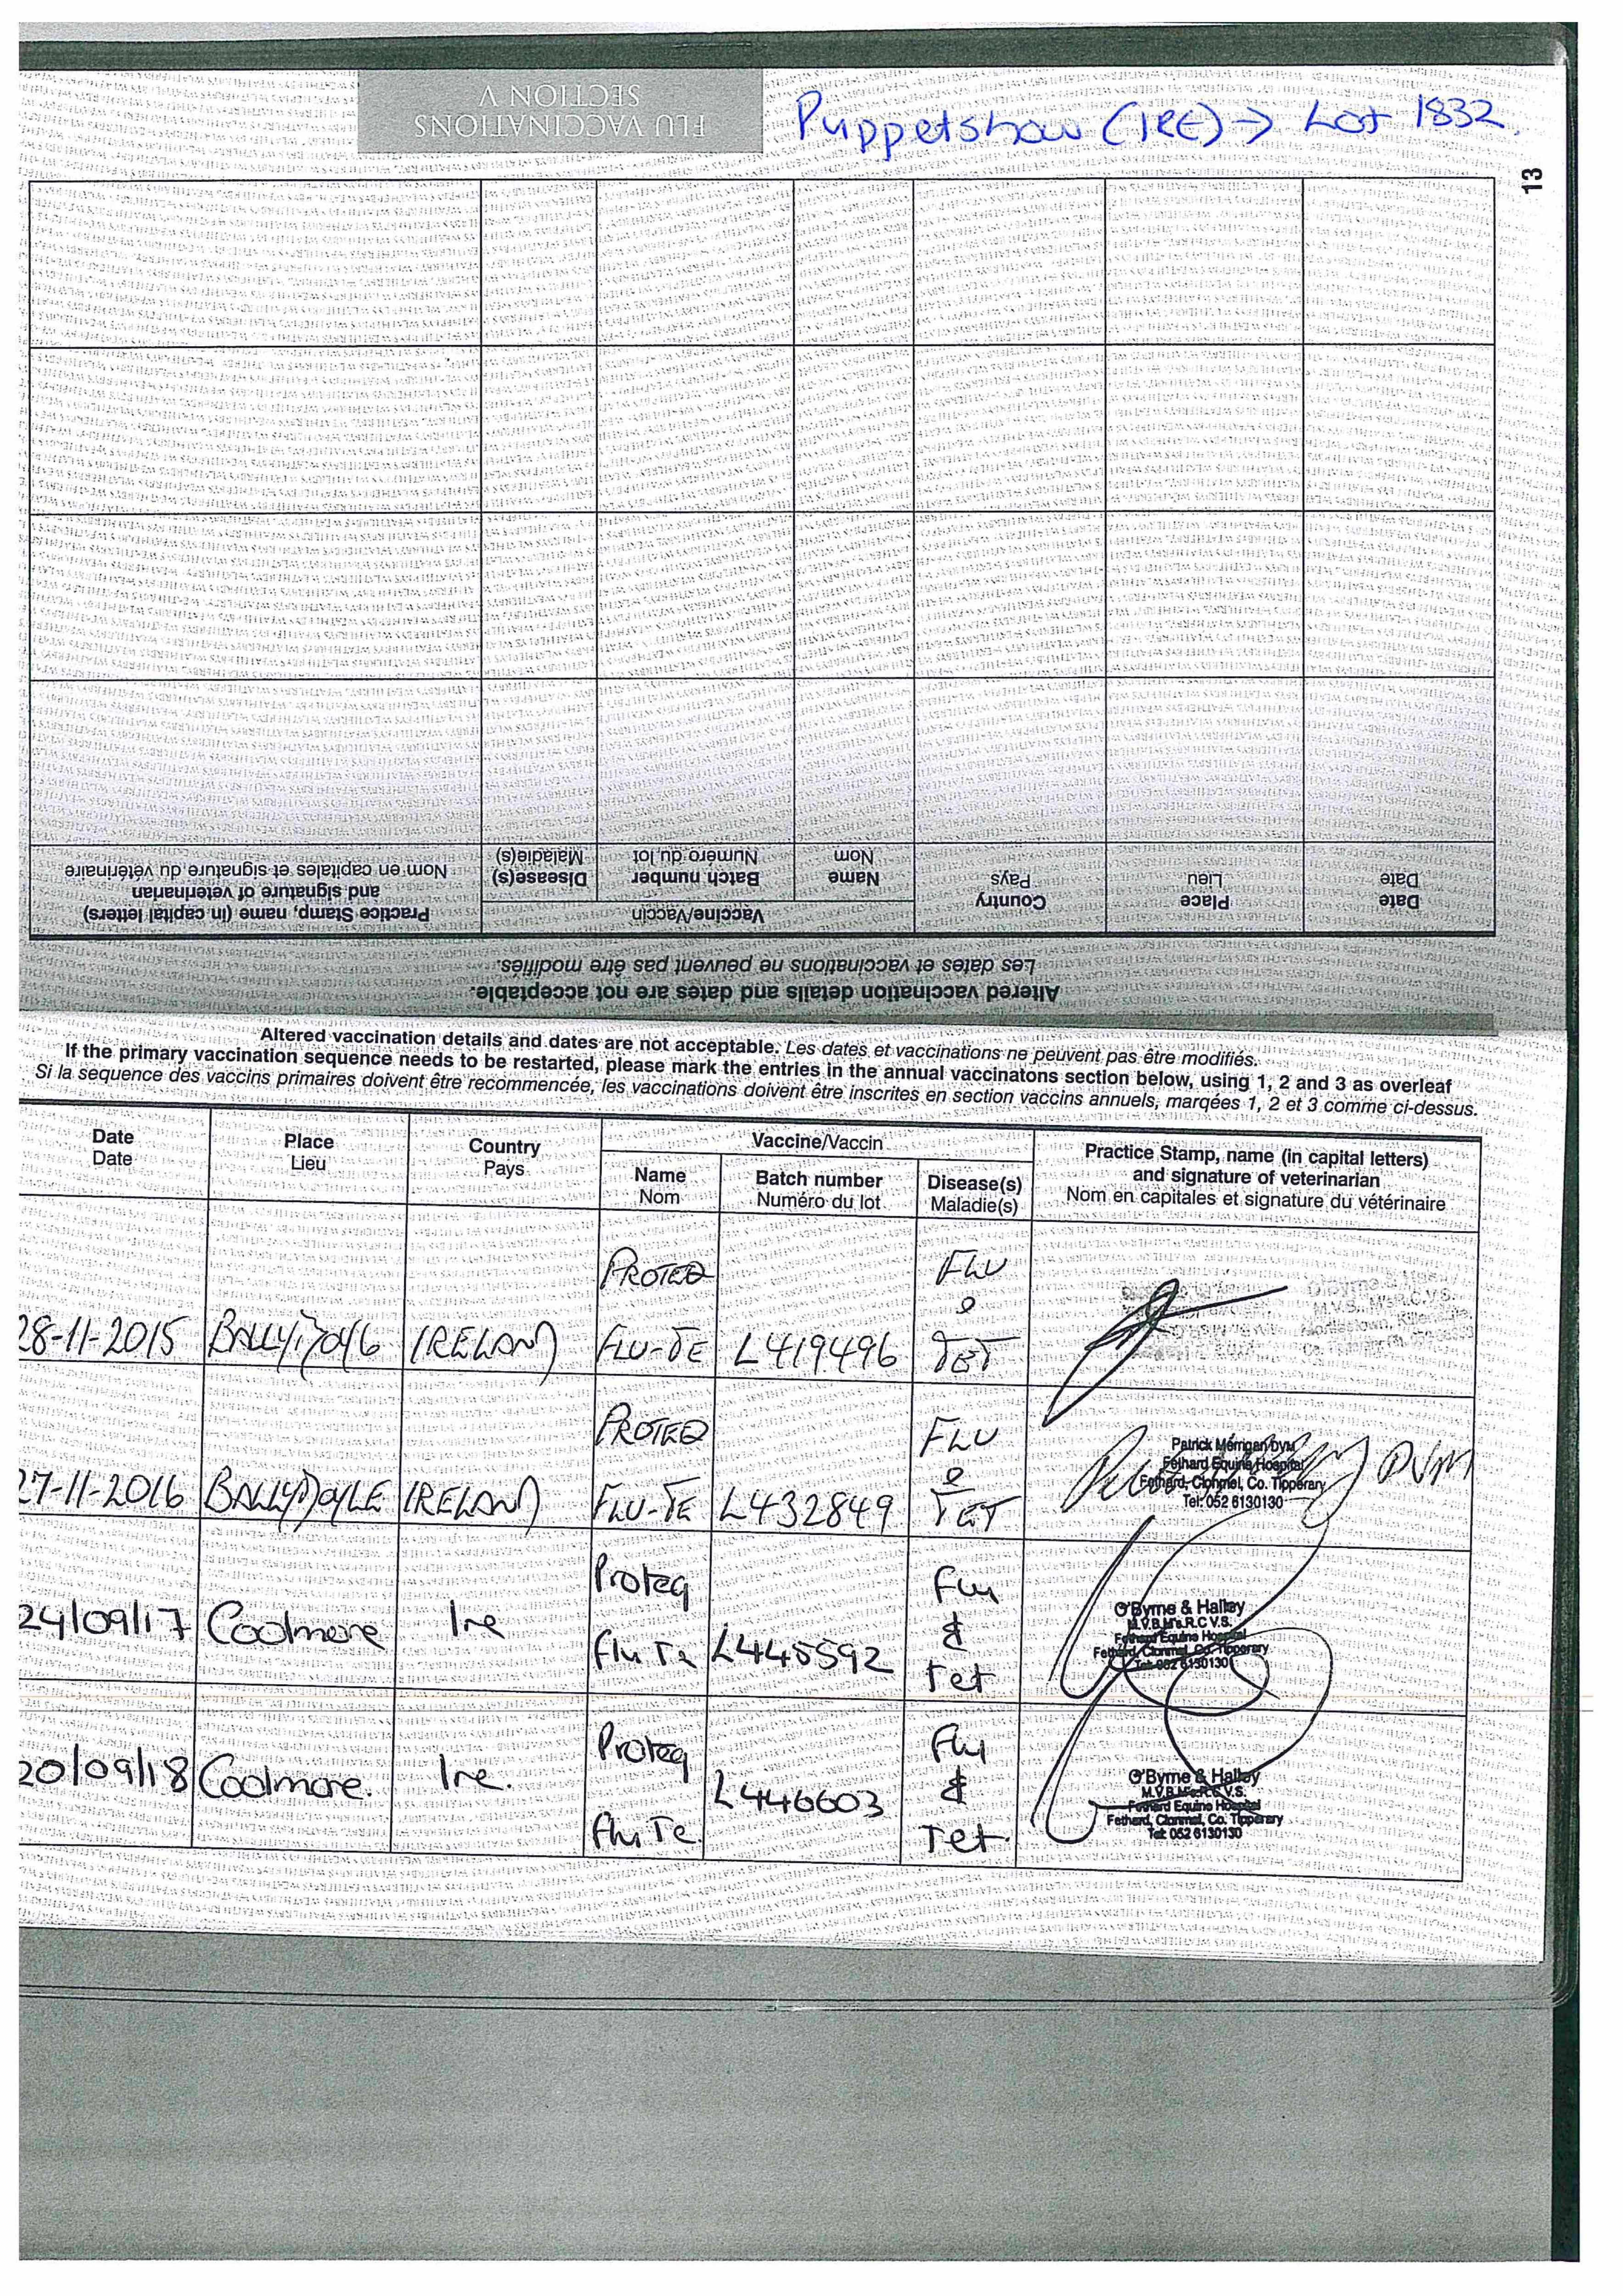 Puppetshow (IRE) → Lot 1832.
FLU VACCINATIONS
SECTION V
13
Altered vaccination details and dates are not acceptable.
Les dates et vaccinations ne peuvent pas être modifiés.
Date
Date
Place
Lieu
Country
Pays
Vaccine/Vaccin
Name
Nom
Batch number
Numéro du lot
Disease(s)
Maladie(s)
Practice Stamp, name (in capital letters)
and signature of veterinarian
Nom en capitales et signature du vétérinaire
Altered vaccination details and dates are not acceptable. Les dates et vaccinations ne peuvent pas être modifiés.
If the primary vaccination sequence needs to be restarted, please mark the entries in the annual vaccinatons section below, using 1, 2 and 3 as overleaf
Si la sequence des vaccins primaires doivent être recommencée, les vaccinations doivent être inscrites en section vaccins annuels, marqées 1, 2 et 3 comme ci-dessus.
Date
Date
Place
Lieu
Country
Pays
Vaccine/Vaccin
Name
Nom
Batch number
Numéro du lot
Disease(s)
Maladie(s)
Practice Stamp, name (in capital letters)
and signature of veterinarian
Nom en capitales et signature du vétérinaire
28-11-2015 BALLYDOYLE IRELAND PROTEQ FLU-TE L419496 FLU & TET
M.V.B., M's R.C.V.S.
27-11-2016 BALLYDOYLE IRELAND PROTEQ FLU-TE L432849 FLU & TET
Patrick Merrigan DVM
Fethard Equine Hospital
Fethard, Clonmel, Co. Tipperary
Tel: 052 6130130
DVM
24/09/17 Coolmore Ire Proteq Flu Te L445592 Flu & Tet
O'Byrne & Halley
M.V.B. M's R.C.V.S.
Fethard Equine Hospital
Fethard, Clonmel, Co. Tipperary
Tel: 052 6130130
20/09/18 Coolmore. Ire. Proteq Flu Te. L446603 Flu & Tet.
O'Byrne & Halley
M.V.B. M's R.C.V.S.
Fethard Equine Hospital
Fethard, Clonmel, Co. Tipperary
Tel: 052 6130130